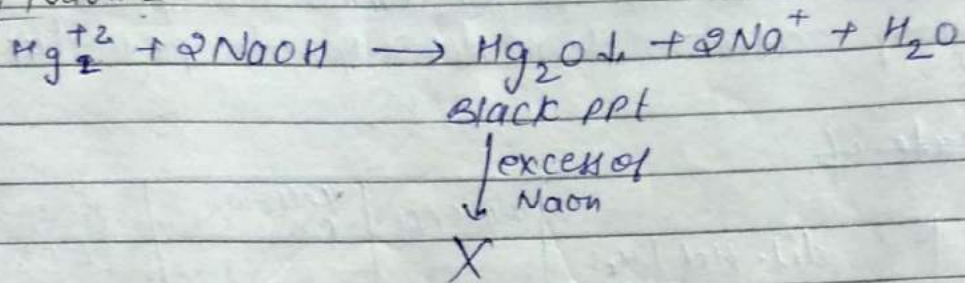 Hg₂⁺² + 2NaOH ⟶ Hg₂O↓ + 2Na⁺ + H₂O
Black ppt
↓ excess of
NaOH
X